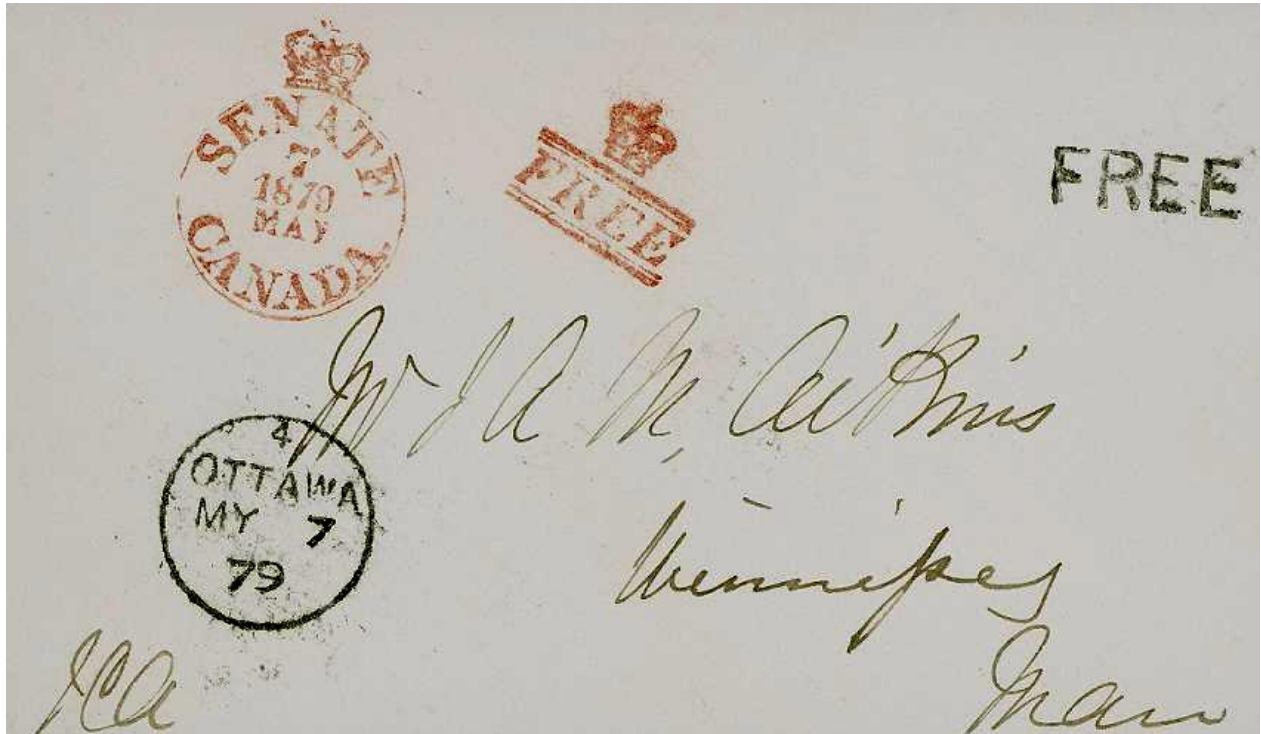 SENATE
7
1879
MAY
CANADA.
FREE
FREE
Mr J A M. Aikins
4
OTTAWA
MY 7
79
Winnipeg
JCA
Man